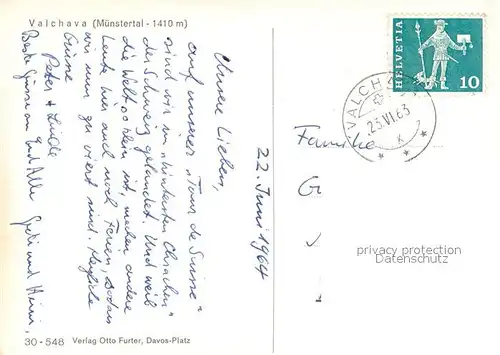 Valchava (Münstertal - 1410 m)
Unsere Lieben,
auf unserer "Tour de Suisse"
sind wir im "hintersten Chrachen"
der Schweiz gelandet. Und weil
die Welt so klein ist, machen andere
Leute hier auch noch Ferien, sodass
wir nun zu viert sind. Herzliche
Grüsse
Peter + Linde
Beste Grüsse an Euch Alle
und Heini,
22. Juni 1964
HELVETIA
10
VALCHAVA
23.VI.63
Familie
G
privacy protection
Datenschutz
30-548 Verlag Otto Furter, Davos-Platz